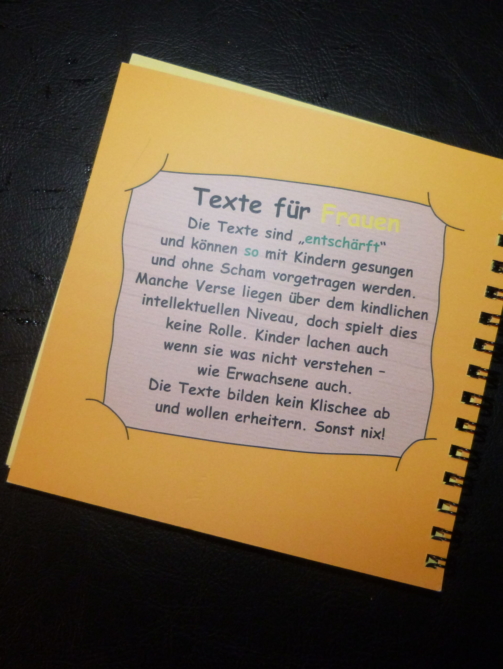 Texte für Frauen
Die Texte sind „entschärft“
und können so mit Kindern gesungen
und ohne Scham vorgetragen werden.
Manche Verse liegen über dem kindlichen
intellektuellen Niveau, doch spielt dies
keine Rolle. Kinder lachen auch
wenn sie was nicht verstehen –
wie Erwachsene auch.
Die Texte bilden kein Klischee ab
und wollen erheitern. Sonst nix!